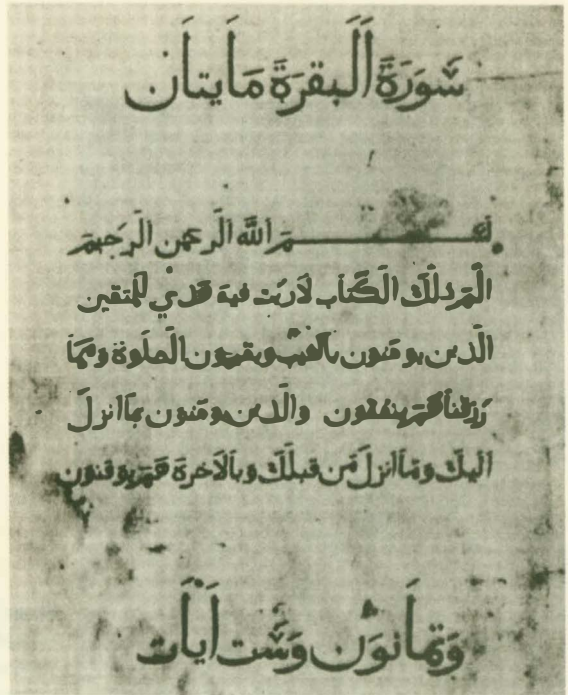 سورة البقرة مايتان
بسم الله الرحمن الرحيم
الم ذلك الكتاب لا ريب فيه هدي للمتقين
الذين يومنون بالغيب ويقيمون الصلوة ومما
رزقناهم ينفقون والذين يومنون بما انزل
اليك وما انزل من قبلك وبالاخرة هم يوقنون
وثمانون وست ايات